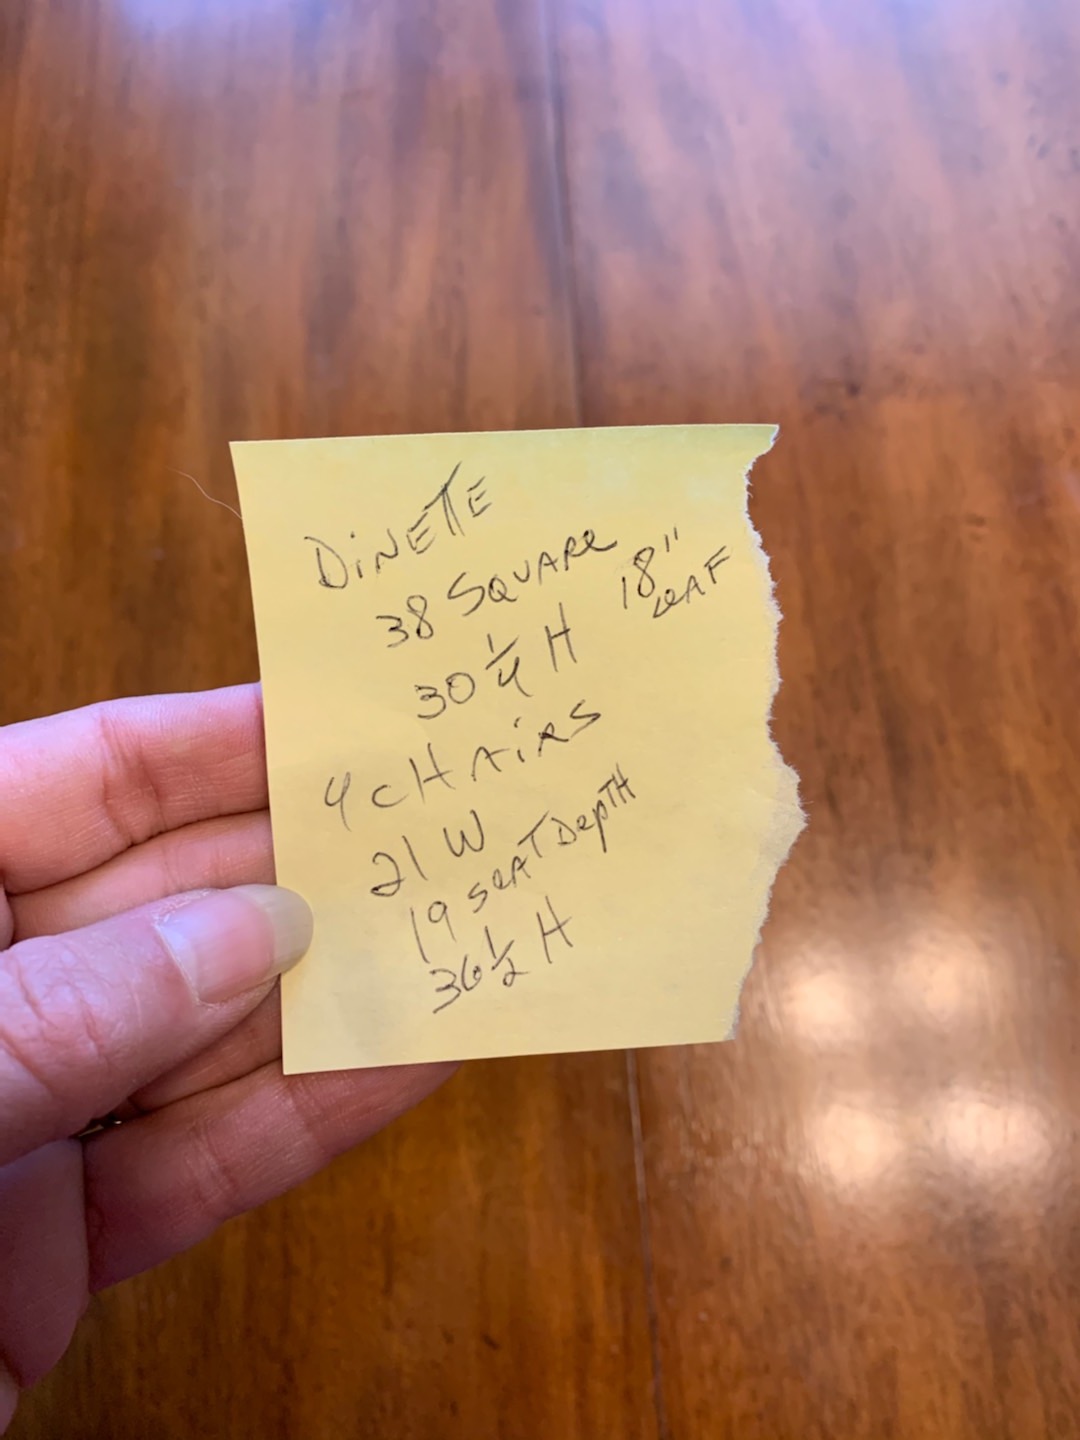 DiNETTE
38 SQUARe 18" LeAF
30 1/4 H
4 cHAiRS
21 W
19 seAT DepTH
36 1/2 H